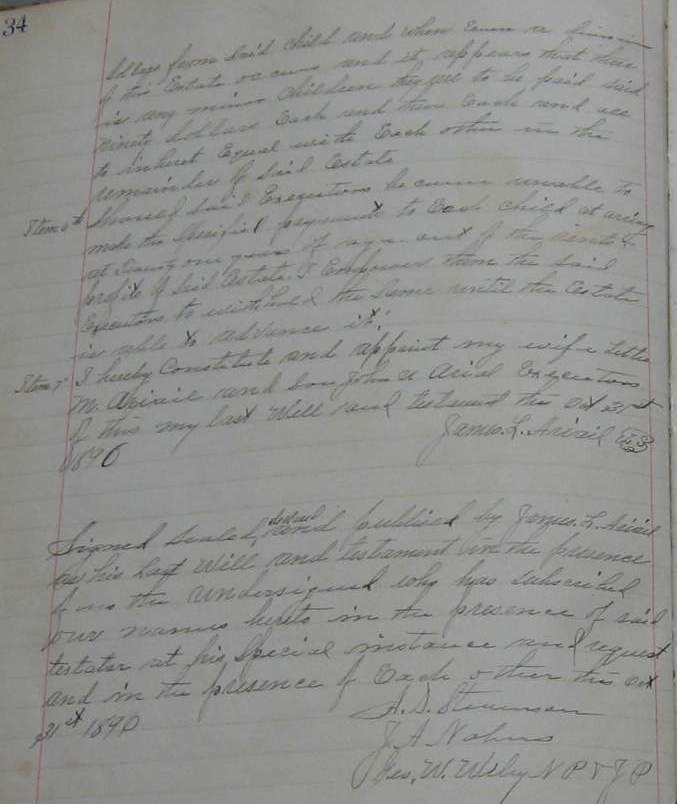 34
dollars from said child and when Ever a division
of this Estate occurs and it appears that there
is any minor children they are to be paid said
ninety dollars Each and then Each and all
to inherit Equal with Each other in the
remainder of said Estate
Item 6th Should said Executors become unable to
make the Specified payments to Each child at
at Twenty one years of age out of the rents &
profits of said Estate I Empower them the said
Executors to withhold the same until the Estate
is able to advance it.
Item 7" I hereby Constitute and appoint my wife
M. Ariail and son John Ariail Executors
of this my last Will and testament this Oct 31st
1890
James. L. Ariail LS
Signed Sealed, declared and published by James. L. Ariail
as his Last Will and testament in the presence
of us the undersigned who has subscribed
our names hereto in the presence of said
testator at his Special instance and request
and in the presence of Each other this Oct
31st 1890
A. S. Stevenson
J. A. Nabers
Geo. W. N P & J P